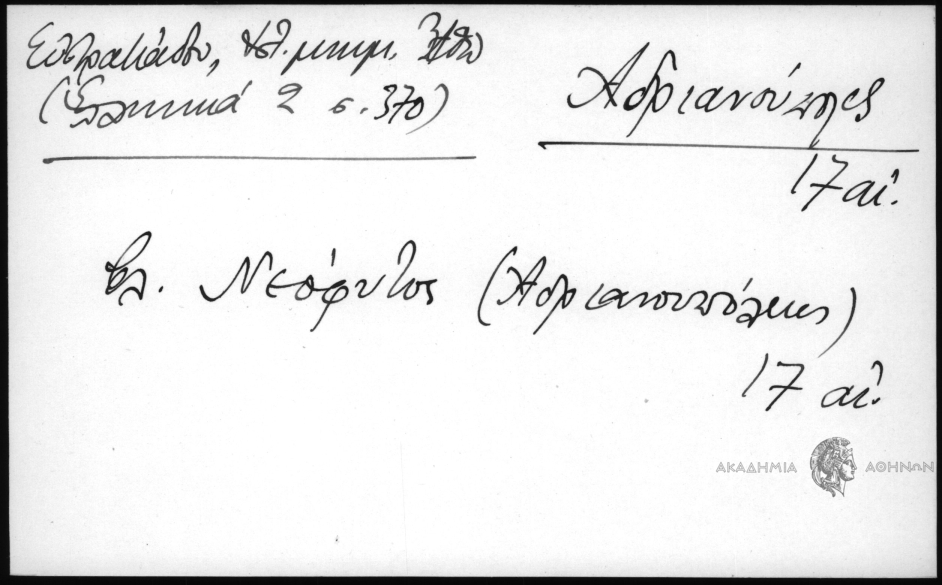 Εὐστρατιάδου, ἁγ. μνημ. Ἄθω
(Ἑλληνικά 2 σ. 370)
Ἀδριανούπολις
17 αἰ.
βλ. Νεόφυτος (Ἀδριανουπόλεως)
17 αἰ.
ΑΚΑΔΗΜΙΑ ΑΘΗΝΩΝ